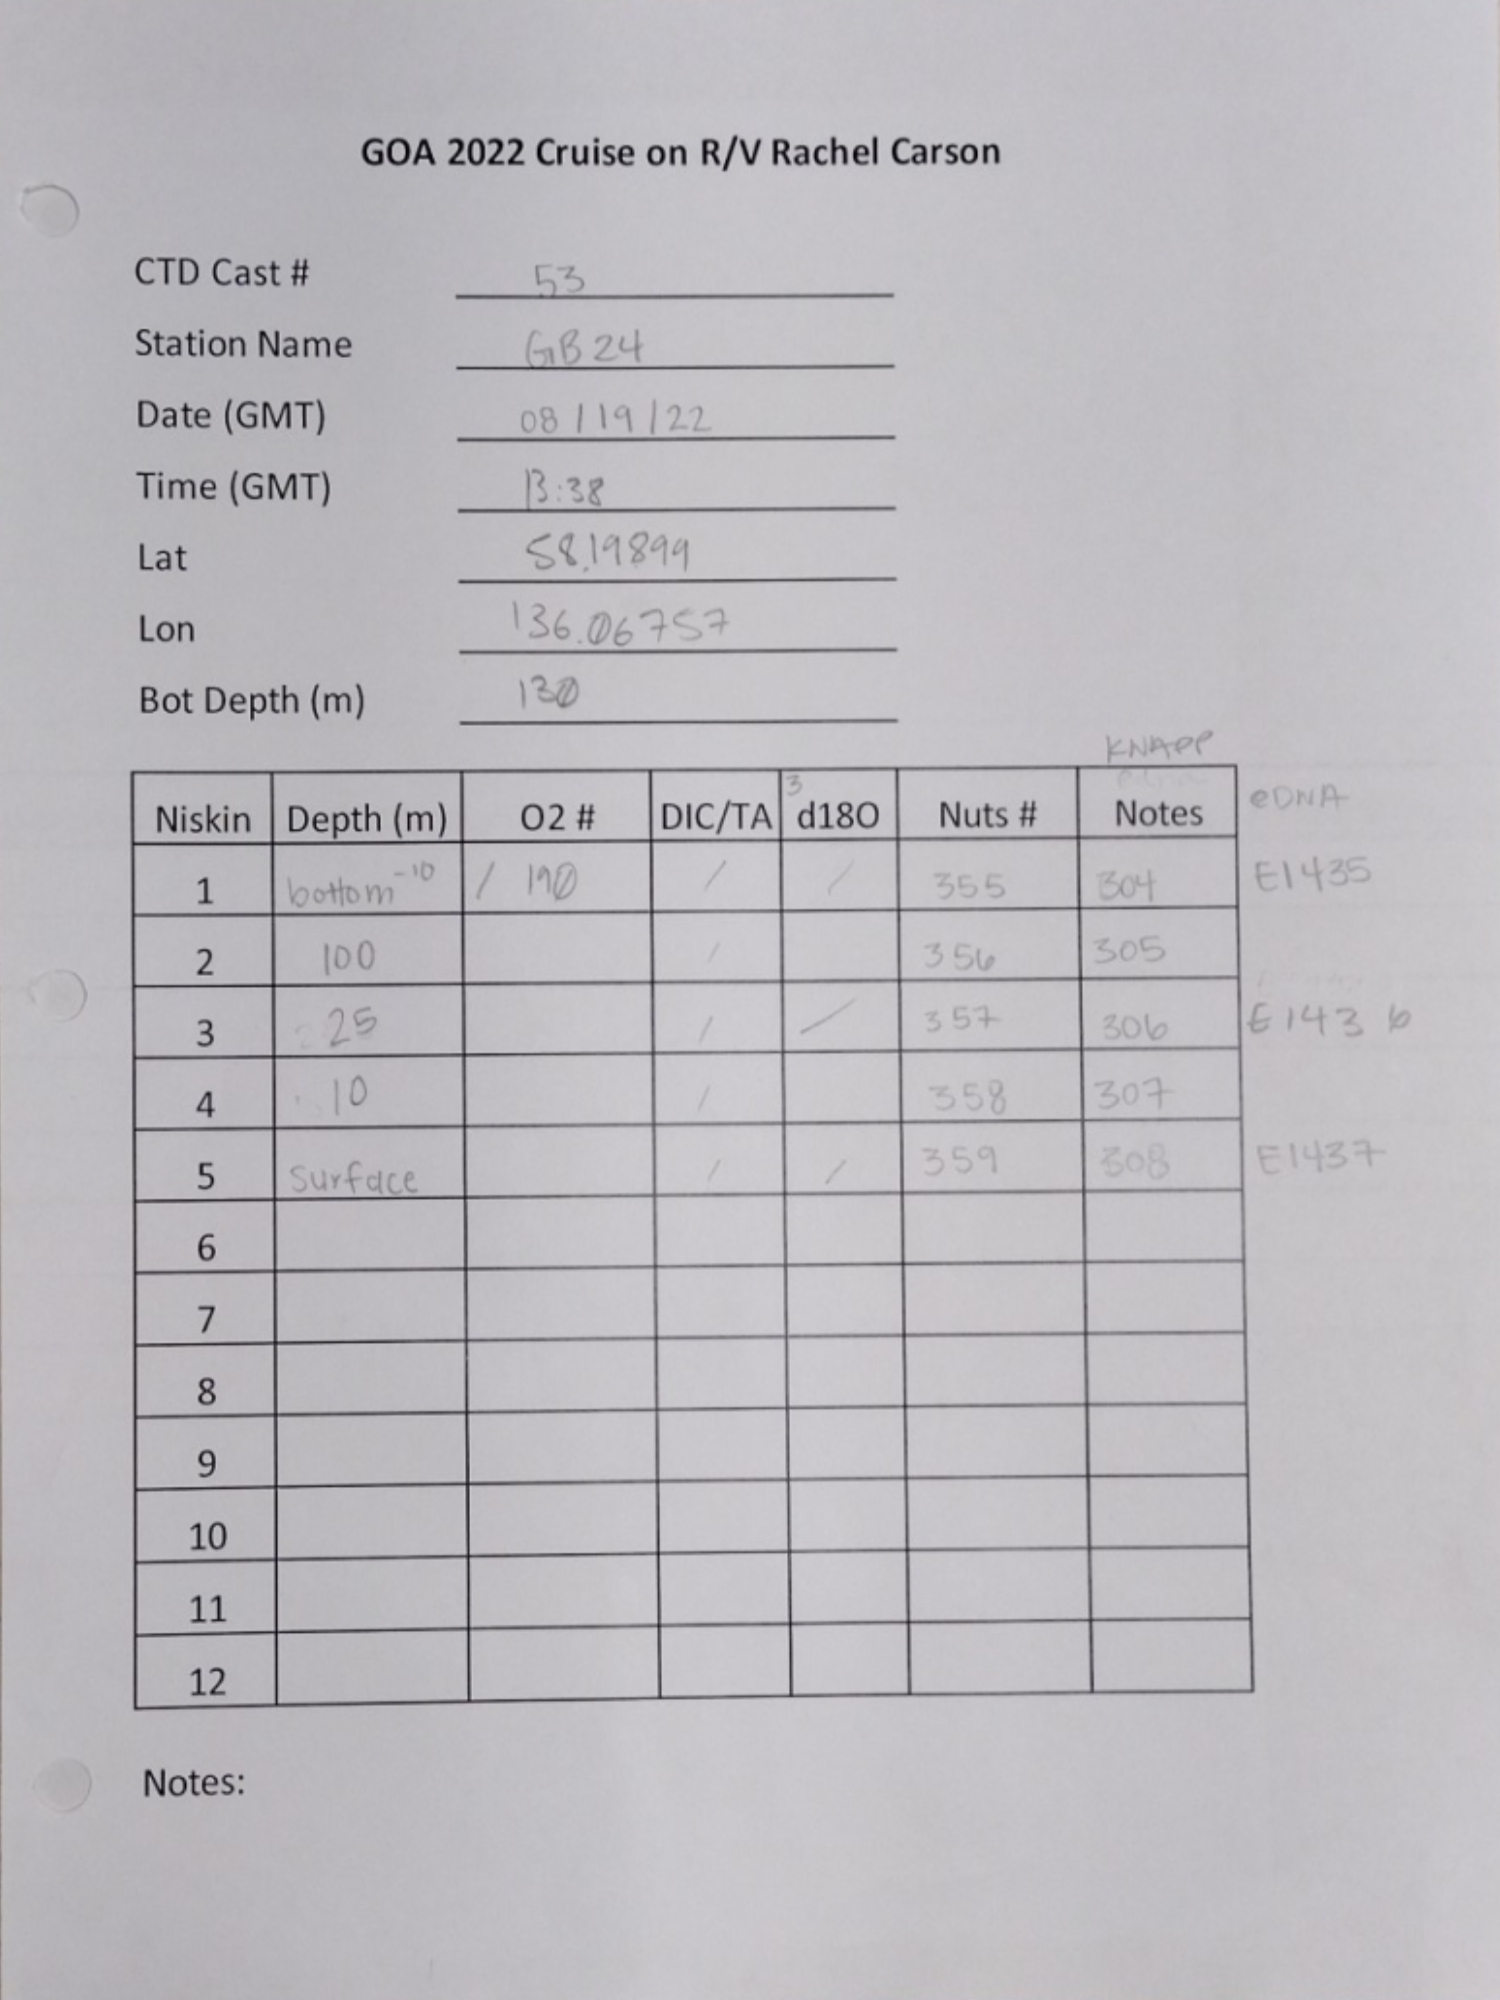 GOA 2022 Cruise on R/V Rachel Carson
CTD Cast # 53
Station Name GB24
Date (GMT) 08/19/22
Time (GMT) 13:38
Lat 58.19899
Lon 136.06757
Bot Depth (m) 130
KNAPP
3
Niskin Depth (m) O2 # DIC/TA d18O Nuts # Notes eDNA
1 bottom-10 / 190 / / 355 304 E1435
2 100 / 356 305
3 25 / / 357 306 E1436
4 10 / 358 307
5 surface / / 359 308 E1437
6
7
8
9
10
11
12
Notes: